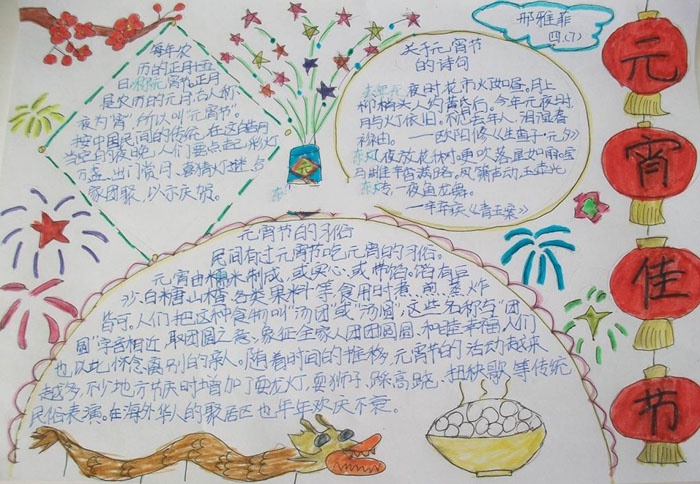 每年农
历的正月十五
日元宵节。正月
是农历的元月，古人称
夜为"宵"所以叫"元宵节"。
按中国民间的传统，在这皓月
高空的夜晚，人们要点起彩灯
万盏，出门赏月、喜猜灯谜、合
家团聚，以示庆贺。
关于元宵节
的诗句
去年元夜时花市灯如昼。月上
柳梢头人约黄昏后。今年元夜时
月与灯依旧。不见去年人，泪湿春
衫袖。
——欧阳修《生查子·元夕》
东风夜放花千树更吹落星如雨宝
马雕车香满路。凤箫声动，玉壶光
转，一夜鱼龙舞。
——辛弃疾《青玉案》
邢雅菲
四、(7)
元
宵
佳
节
元宵节的习俗
民间有过元宵节吃元宵的习俗。
元宵由糯米制成，或实心，或带馅。馅有豆
沙、白糖、山楂、各类果料等，食用时煮、煎、蒸、炸
皆可。人们把这种食物叫"汤团"或"汤圆"，这些名称与"团
圆"字音相近，取团圆之意，象征全家人团团圆圆，和睦幸福，人们
也以此怀念离别的亲人。随着时间的推移，元宵节的活动越来
越多，不少地方节庆时增加了耍龙灯、耍狮子、踩高跷、扭秧歌等传统
民俗表演。在海外华人的聚居区也年年欢庆不衰。